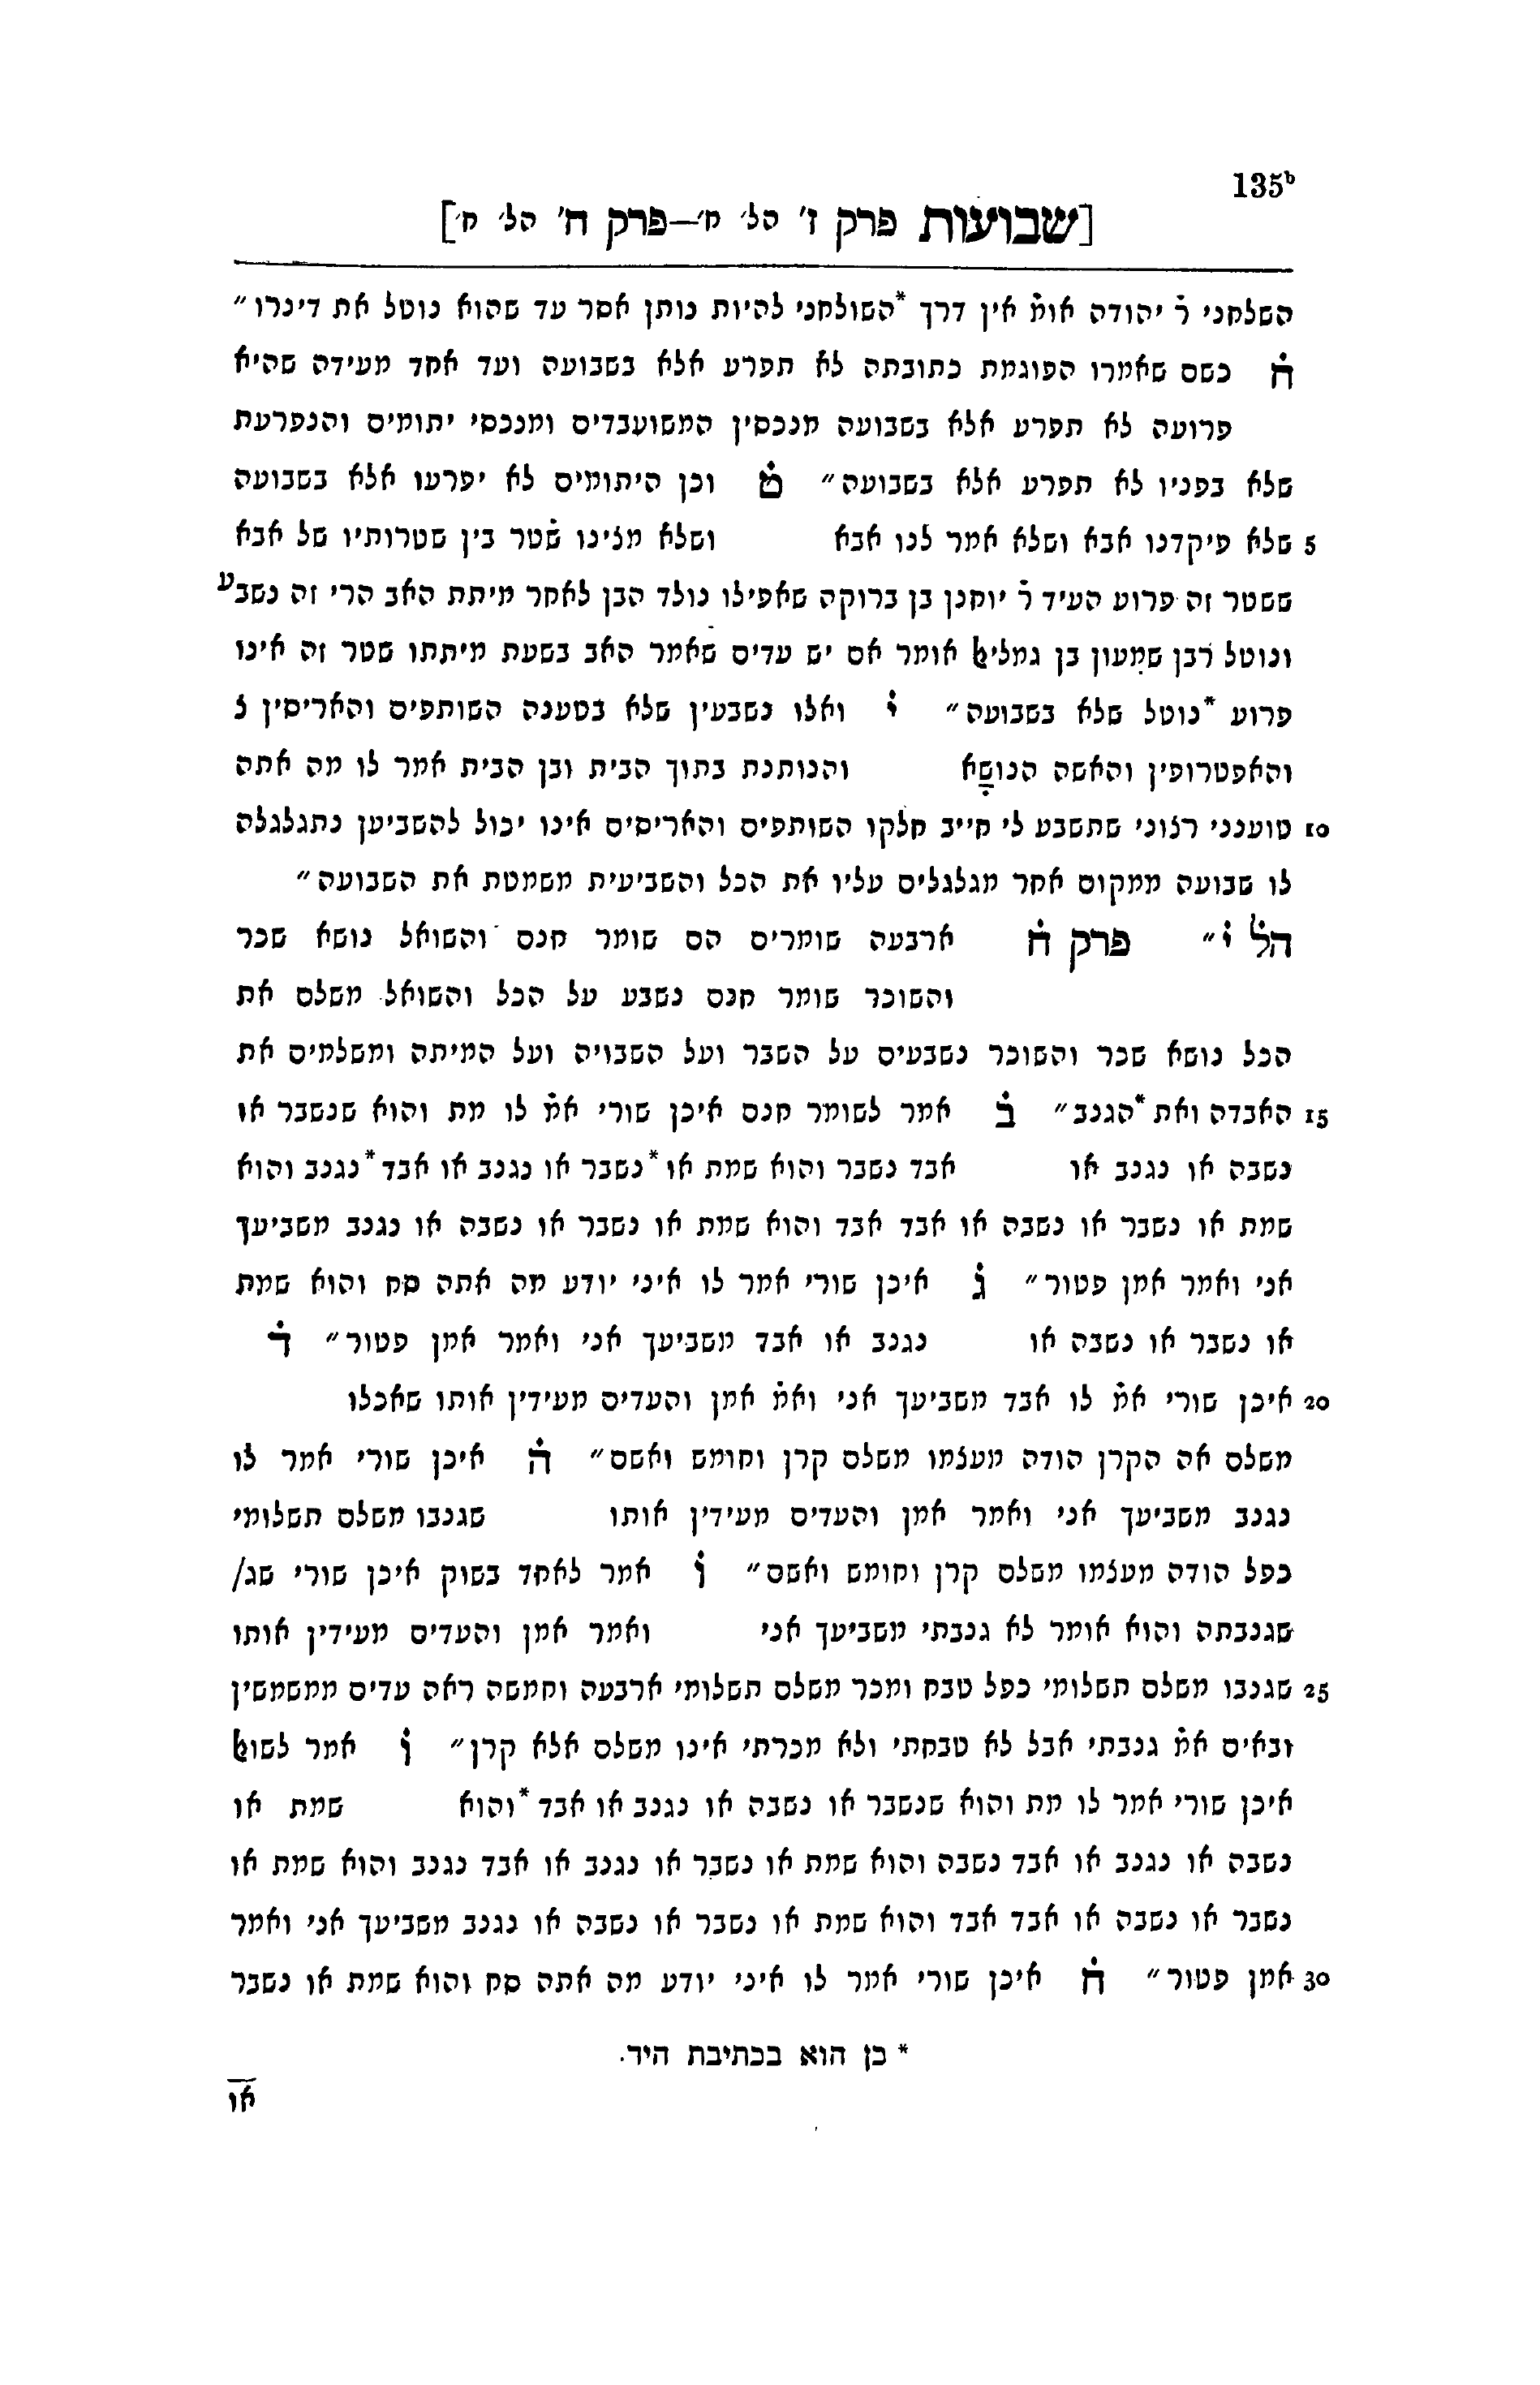 135ᵇ
[שבועות פרק ז' הל' ח'—פרק ח' הל' ח']
השלחני ר׳ יהודה אומ׳ אין דרך *השולחני להיות נותן אסר עד שהוא נוטל את דינרו״
ח׳ כשם שאמרו הפוגמת כתובתה לא תפרע אלא בשבועה ועד אחד מעידה שהיא
פרועה לא תפרע אלא בשבועה מנכסין המשועבדים ומנכסי יתומים והנפרעת
שלא בפניו לא תפרע אלא בשבועה״ ט׳ וכן היתומים לא יפרעו אלא בשבועה
5 שלא פיקדנו אבא ושלא אמר לנו אבא ושלא מצינו שטר בין שטרותיו של אבא
ששטר זה פרוע העיד ר׳ יוחנן בן ברוקה שאפילו נולד הבן לאחר מיתת האב הרי זה נשבע
ונוטל רבן שמעון בן גמליאל אומר אם יש עדים שאמר האב בשעת מיתתו שטר זה אינו
פרוע *נוטל שלא בשבועה״ י׳ ואלו נשבעין שלא בטענה השותפים והאריסין ל
והאפטרופין והאשה הנושא והנותנת בתוך הבית ובן הבית אמר לו מה אתה
10 טוענני רצוני שתשבע לי חייב חלקו השותפים והאריסים אינו יכול להשביען נתגלגלה
לו שבועה ממקום אחר מגלגלים עליו את הכל והשביעית משמטת את השבועה״
הל׳ י׳״ פרק ח׳ ארבעה שומרים הם שומר חנם והשואל נושא שכר
והשוכר שומר חנם נשבע על הכל והשואל משלם את
הכל נושא שכר והשוכר נשבעים על השבר ועל השבויה ועל המיתה ומשלמים את
15 האבדה ואת *הגנב״ ב׳ אמר לשומר חנם איכן שורי אמ׳ לו מת והוא שנשבר או
נשבה או נגנב או אבד נשבר והוא שמת או *נשבר או נגנב או אבד *נגנב והוא
שמת או נשבר או נשבה או אבד אבד והוא שמת או נשבר או נשבה או נגנב משביעך
אני ואמר אמן פטור״ ג׳ איכן שורי אמר לו איני יודע מה אתה סח והוא שמת
או נשבר או נשבה או נגנב או אבד משביעך אני ואמר אמן פטור״ ד׳
20 איכן שורי אמ׳ לו אבד משביעך אני ואמ׳ אמן והעדים מעידין אותו שאכלו
משלם אה הקרן הודה מעצמו משלם קרן וחומש ואשם״ ה׳ איכן שורי אמר לו
נגנב משביעך אני ואמר אמן והעדים מעידין אותו שגנבו משלם תשלומי
כפל הודה מעצמו משלם קרן וחומש ואשם״ ו׳ אמר לאחד בשוק איכן שורי שג/
שגנבתה והוא אומר לא גנבתי משביעך אני ואמר אמן והעדים מעידין אותו
25 שגנבו משלם תשלומי כפל טבח ומכר משלם תשלומי ארבעה וחמשה ראה עדים ממשמשין
ובאים אמ׳ גנבתי אבל לא טבחתי ולא מכרתי אינו משלם אלא קרן״ ז׳ אמר לשואל
איכן שורי אמר לו מת והוא שנשבר או נשבה או נגנב או אבד *והוא שמת או
נשבה או נגנב או אבד נשבה והוא שמת או נשבר או נגנב או אבד נגנב והוא שמת או
נשבר או נשבה או אבד אבד והוא שמת או נשבר או נשבה או נגנב משביעך אני ואמר
30 אמן פטור״ ח׳ איכן שורי אמר לו איני יודע מה אתה סח והוא שמת או נשבר
* כן הוא בכתיבת היד.
או